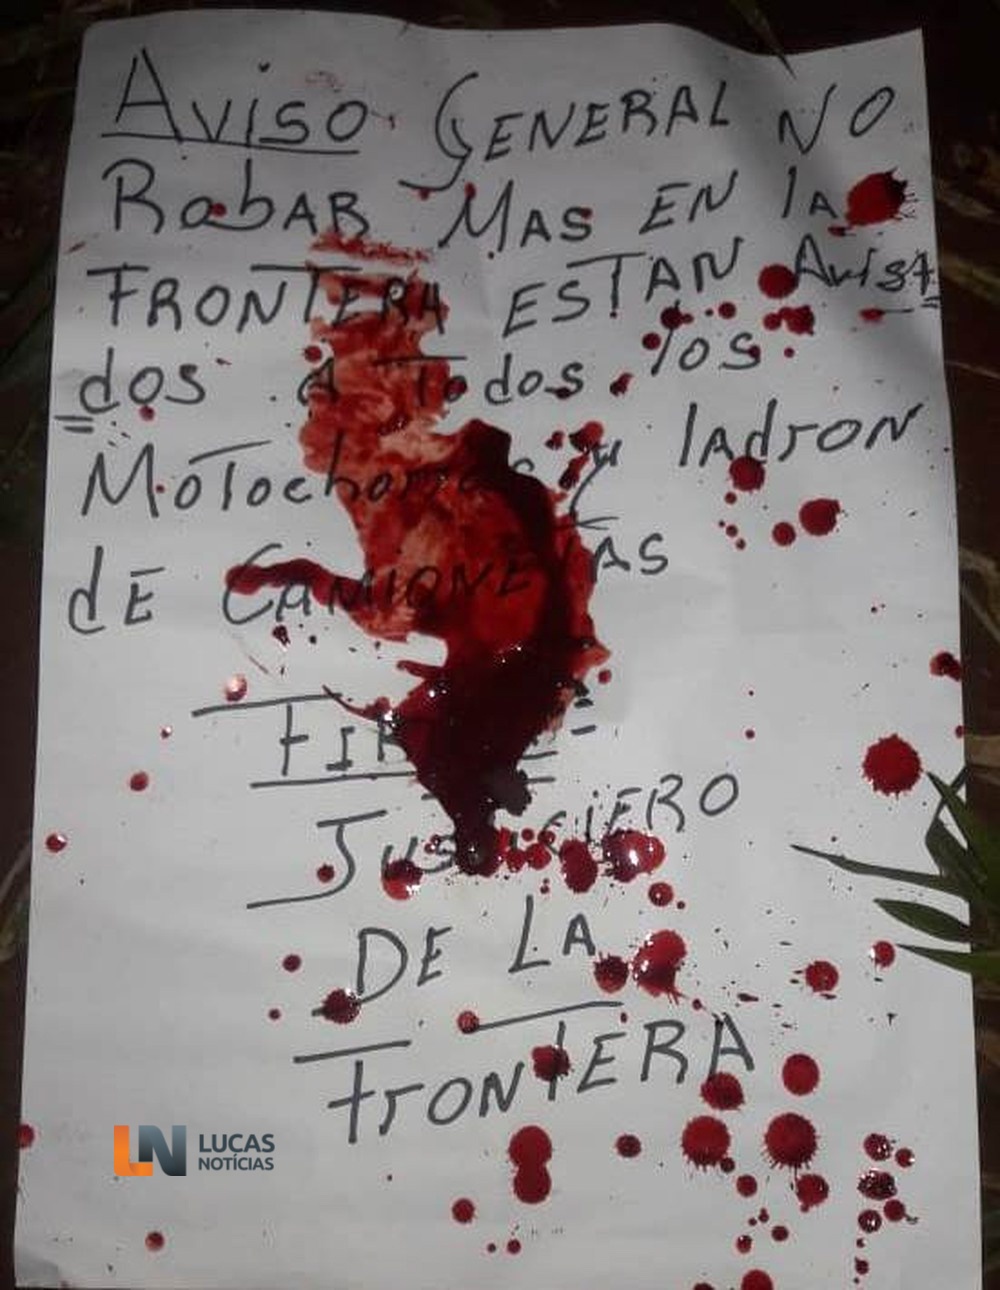 Aviso GENERAL NO
RobAR MAS EN la
FRONTERA ESTAN Avisa
dos A Todos los
Motochorros y ladron
dE CAMIONETAS
JUSTICIERO
DE LA
FRONTERA
LN LUCAS
NOTÍCIAS